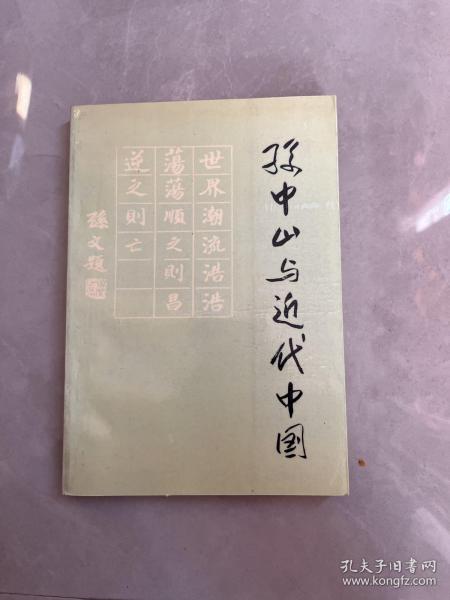 孫中山与近代中国
世界潮流浩浩
蕩蕩順之則昌
逆之則亡
孫文題
孔夫子旧书网
www.kongfz.com